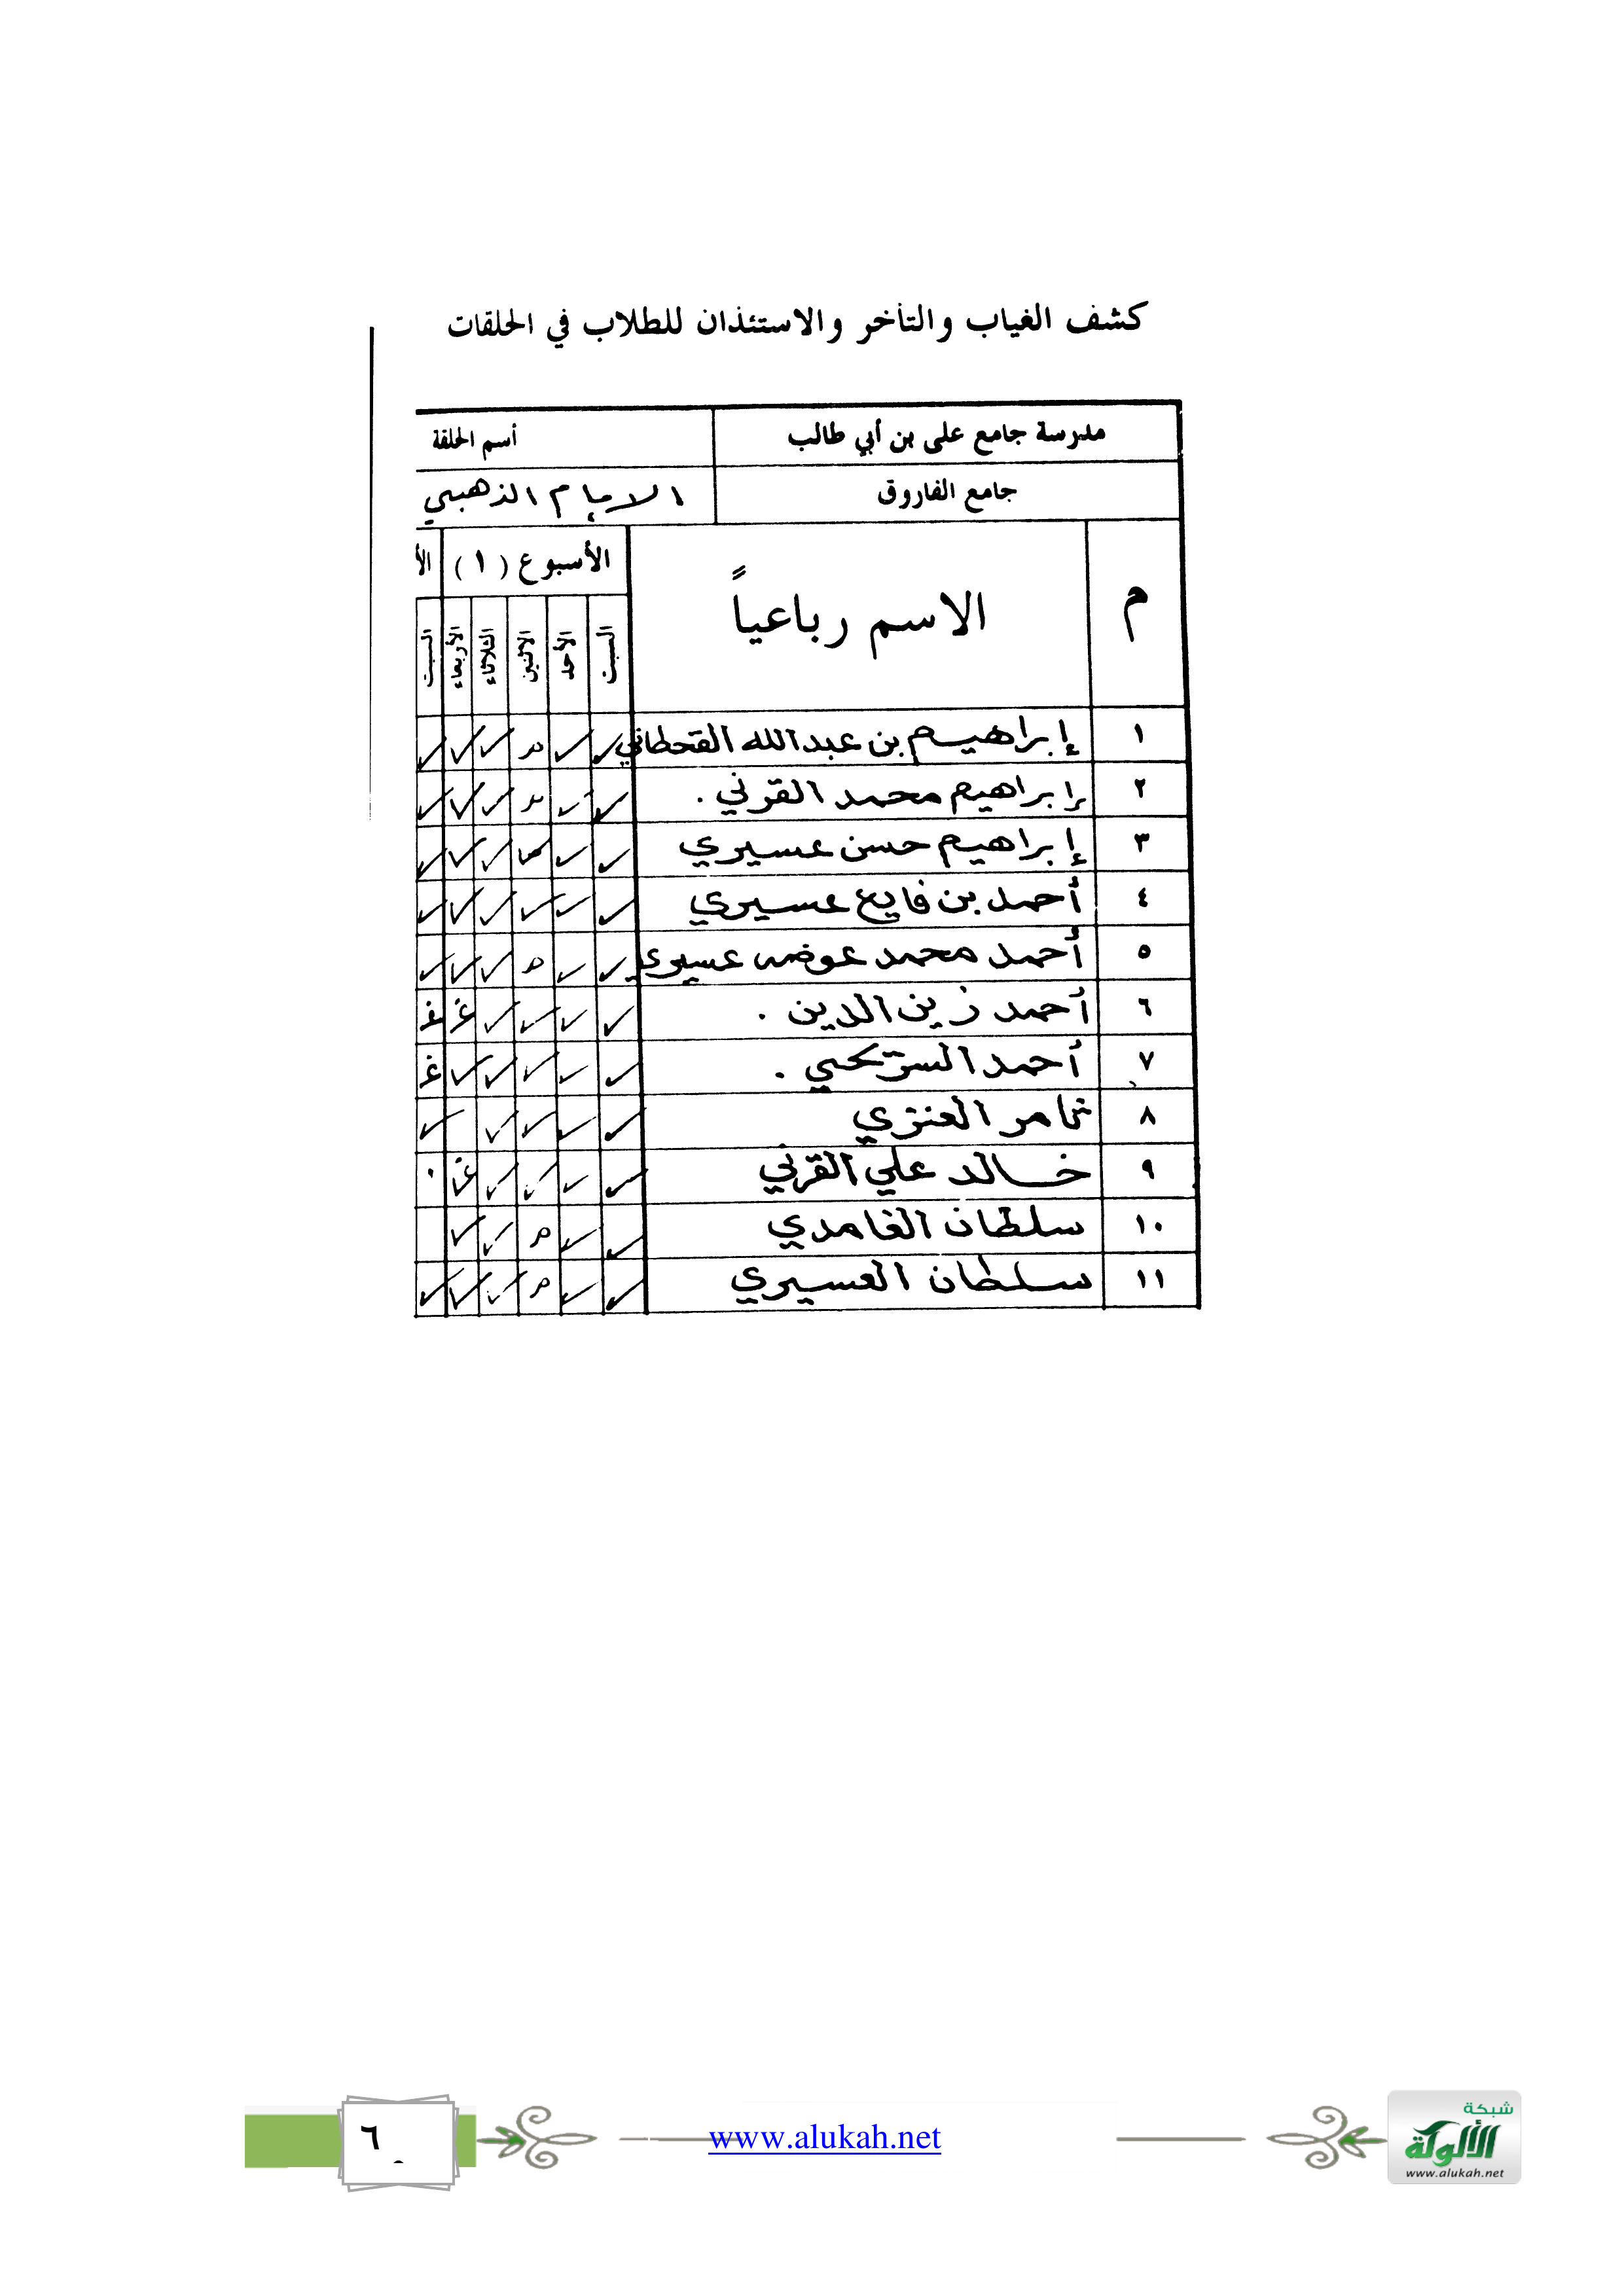 كشف الغياب والتأخر والاستئذان للطلاب في الحلقات
مدرسة جامع على بن أبي طالب أسم الحلقة
جامع الفاروق الإمام الذهبي
م الاسم رباعياً الأسبوع (١) الأ
السبت الأحد الاثنين الثلاثاء الأربعاء السبت
١ إبراهيم بن عبدالله القحطاني ✓ ✓ م ✓ ✓ ✓
٢ إبراهيم محمد القرني . ✓ ✓ م ✓ ✓ ✓
٣ إبراهيم حسن عسيري ✓ ✓ ✓ ✓ ✓
٤ أحمد بن فايع عسيري ✓ ✓ ✓ ✓ ✓ ✓
٥ أحمد محمد عوضه عسيري ✓ ✓ م ✓ ✓ ✓
٦ أحمد زين الدين . ✓ ✓ ✓ ✓ غ غ
٧ أحمد . ✓ ✓ ✓ ✓ ✓ غ
٨ ثامر العنزي ✓ ✓ ✓ ✓ ✓
٩ خالد علي القرني ✓ ✓ ✓ ✓ غ .
١٠ سلطان الغامدي ✓ ✓ م ✓ ✓
١١ سلطان العسيري ✓ ✓ م ✓ ✓ ✓
٦
www.alukah.net
شبكة
الألوكة
www.alukah.net